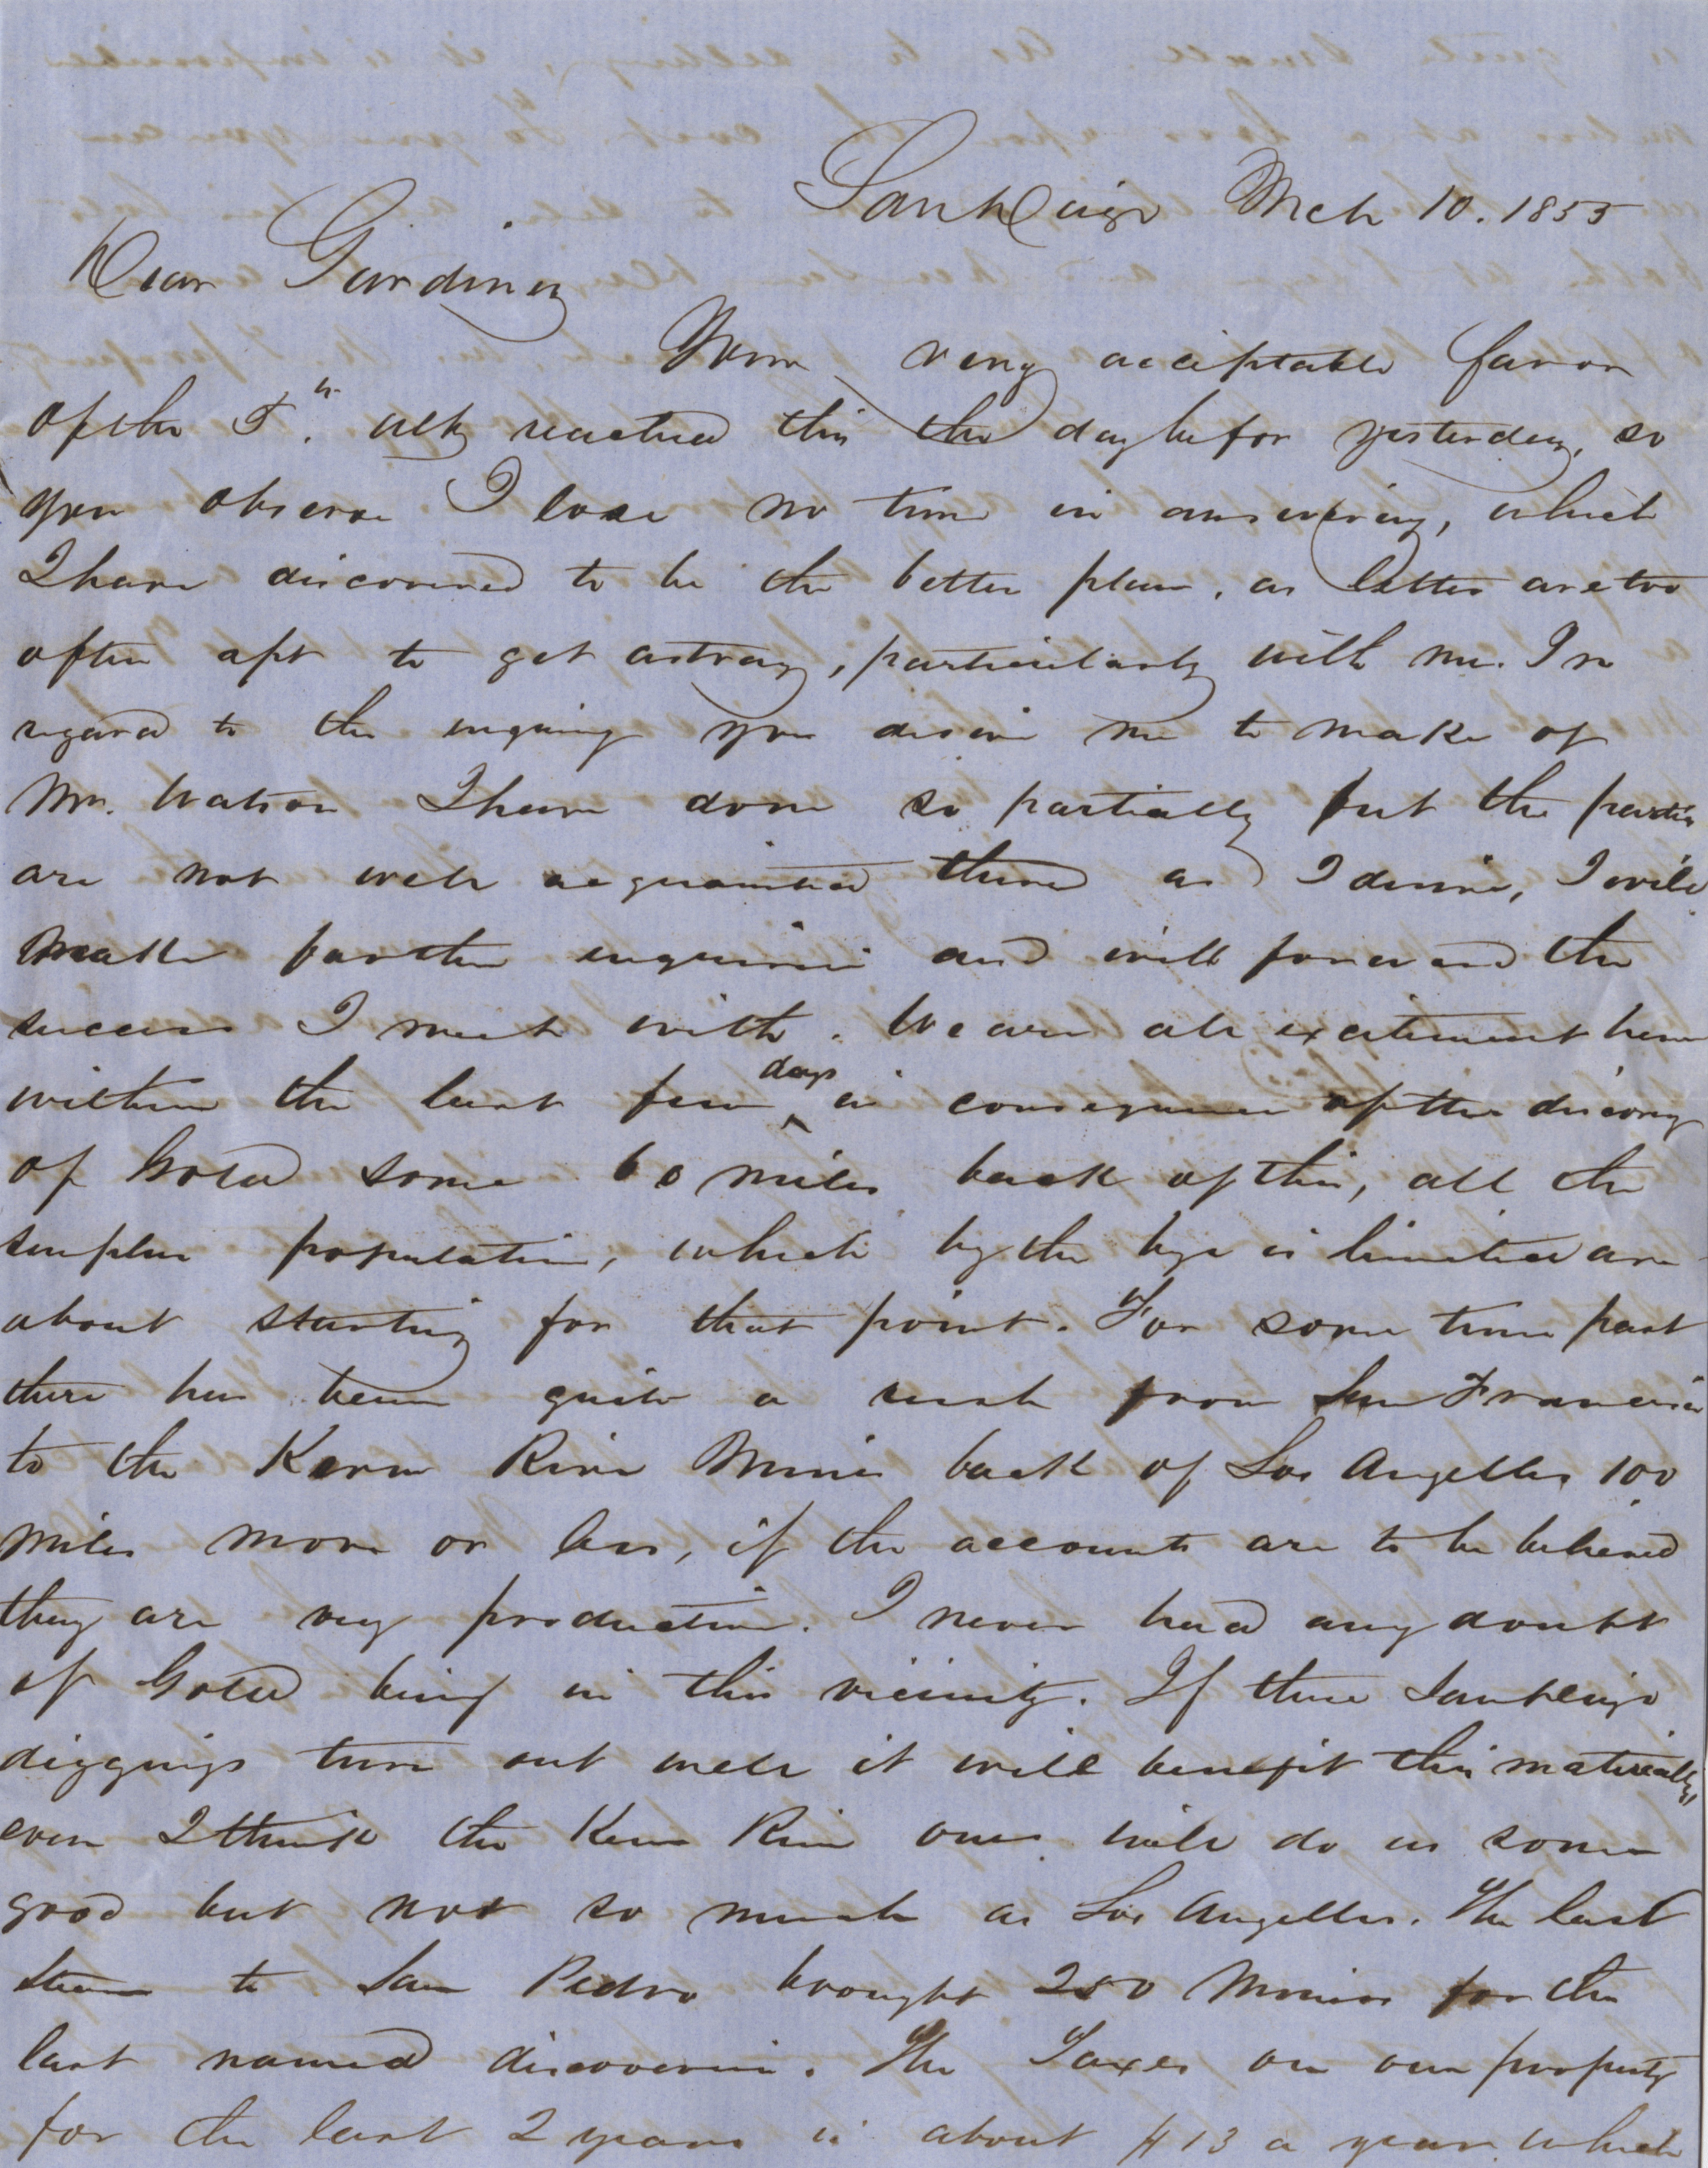 San Diego Mch 10. 1855
Dear Gardiner
Your very acceptable favor
of the 5th. ulty reached this the day befor yesterday, so
you observe I lose no time in answering, which
I have discovered to be the better plan, as letters are too
often apt to get astray, particularly with me. In
regard to the enquiry you desire me to make of
Mr. Watson I have done so partially but the parties
are not well acquainted there as I desire, I will
make farther enquiries and will forward the
success I meet with. We are all excitement here
within the last few days in consequence of the discovery
of Gold some 60 miles back of this, all the
surplus population, which by the bye is limited are
about starting for that point. For some time past
there has been quite a rush from San Francisco
to the Kern River Mines back of Los Angelles 100
miles more or less, if the accounts are to be believed
they are very productive. I never had any doubt
of Gold being in this vicinity. If these San Diego
diggings turn out well it will benefit this materially,
even I think the Kern River ones will do us some
good but not so much as Los Angelles. The last
steamer to San Pedro brought 250 Miners for the
last named discoveries. The Taxes on our property
for the last 2 years is about $13 a year which